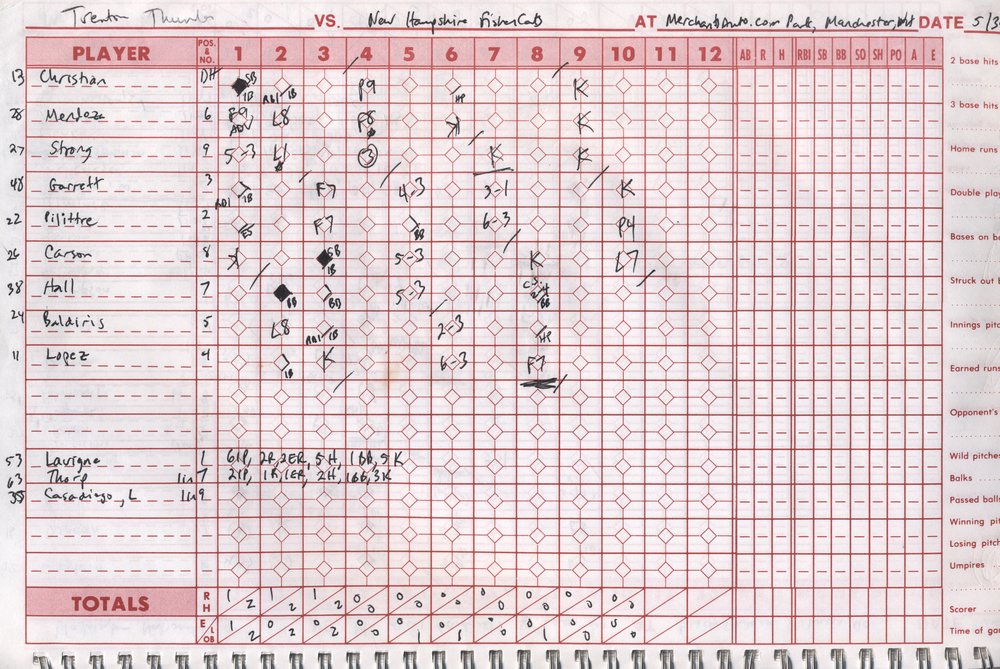 Trenton Thunder VS. New Hampshire FisherCats AT MerchantsAuto.com Park, Manchester, NH DATE 5/3
PLAYER POS. & NO. 1 2 3 4 5 6 7 8 9 10 11 12 AB R H RBI SB BB SO SH PO A E
2 base hits
13 Christian DH SB 1B RBI 1B P9 HP K
3 base hits
28 Mendoza 6 F9 ADV L8 F8 K K
27 Strong 9 5-3 L1 3 K K
Home runs
48 Garrett 3 RBI 1B F7 4-3 3-1 K
Double play
22 Pilittre 2 E5 F7 BB 6-3 P4
Bases on ba
26 Carson 8 K SB 1B 5-3 K L7
Struck out b
38 Hall 7 BB BB 5-3 CS BB
24 Baldiris 5 L8 RBI 1B 2-3 HP
Innings pitc
11 Lopez 4 1B K 6-3 F7
Earned runs
Opponent's
53 Lavigne 1 6IP, 2R, 2ER, 5H, 1BB, 5K
Wild pitches
63 Thorp lin 7 2IP, 1R, 1ER, 2H, 1BB, 3K
Balks
38 Casadiego, L lin 9
Passed balls
Winning pit
Losing pitch
Umpires
TOTALS R H 1 2 1 2 1 2 0 0 0 0 0 0 0 0 0 0 0 0 0 0
E LOB 1 2 0 2 0 2 0 0 0 1 0 1 0 0 0 1 0 0 0 0
Scorer
Time of ga